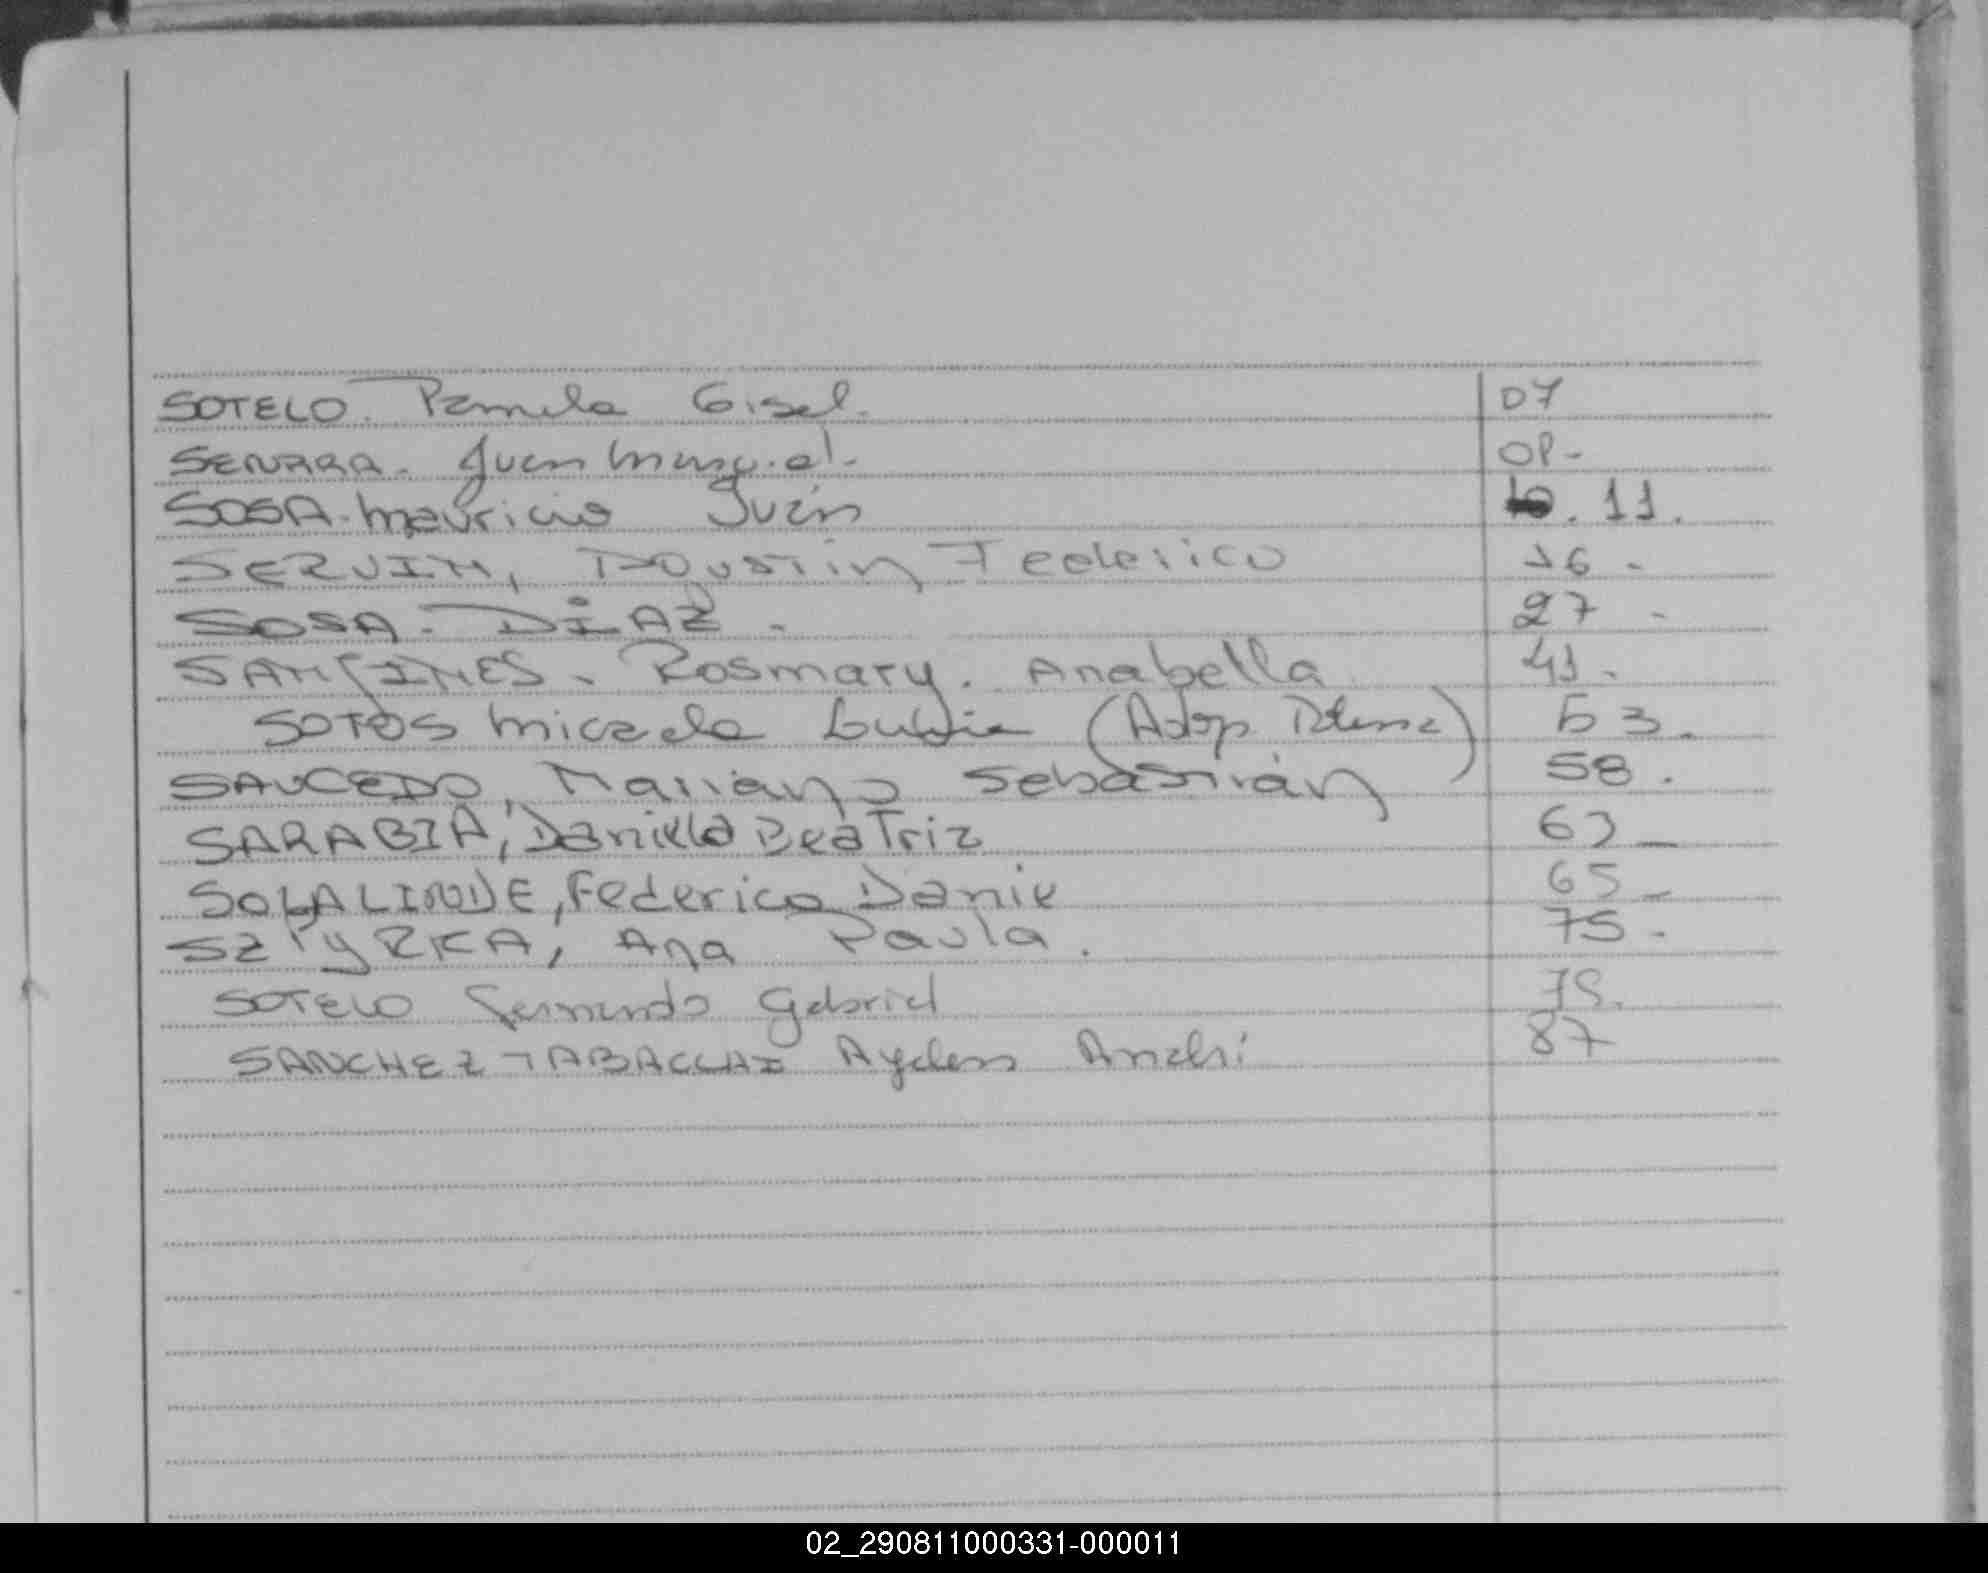 SOTELO. Pamela Gisel. 07
SENRRA. Juan Manuel. 08-
SOSA. Mauricio Juan 10. 11.
SERVIN, Agustin Federico 16.
SOSA. DIAZ. 27.
SANJINES. Rosmary. Anabella 41.
SOTOS Micaela (Adop. Plena) 53.
SAUCEDO, Mariano Sebastián 58.
SARABIA, Daniela Beatriz 63
SOLALINDE, Federico Daniel 65
SZPYRKA, Ana Paula. 75.
SOTELO Fernando Gabriel 79.
SANCHEZ TABACCHI Ayelen 87
02_290811000331-000011